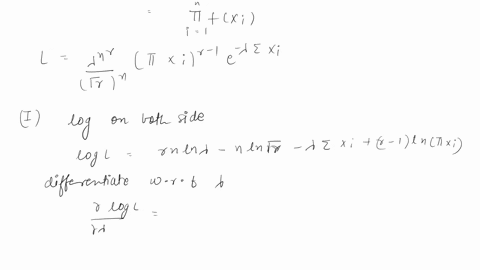 = \prod_{i=1}^{n} f(x_i)
L = \frac{\lambda^{nr}}{(\sqrt{r})^n} (\prod x_i)^{r-1} e^{-\lambda \Sigma x_i}
(I) log on both side
log L = rn ln λ - n ln √r - λ Σ x_i + (r-1) ln(π x_i)
differentiate w.r.t λ
\frac{∂ log L}{∂λ} =